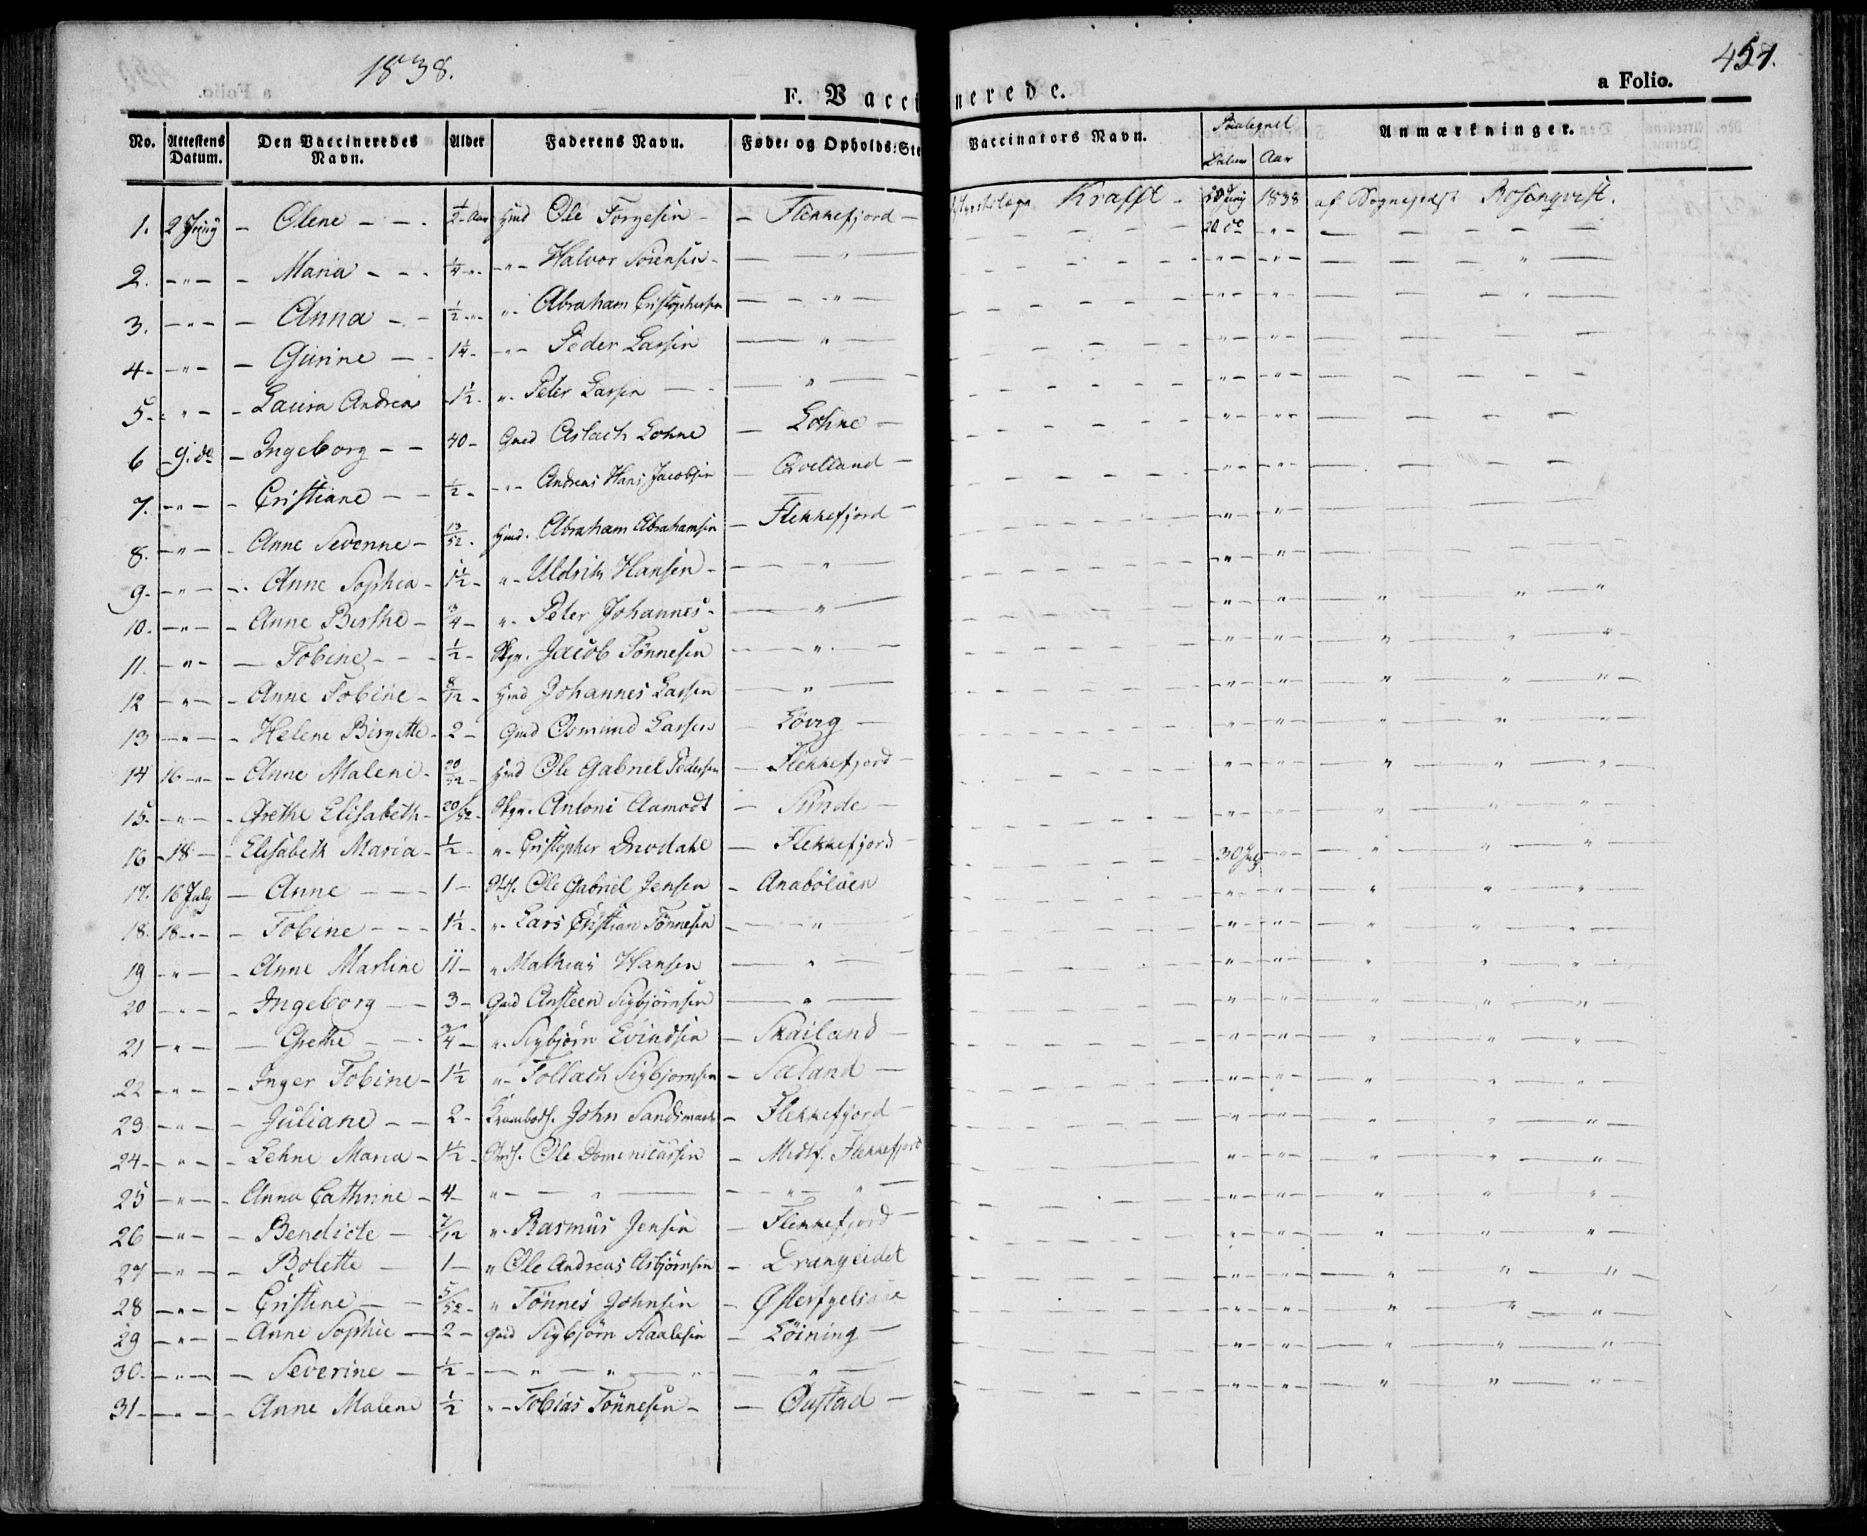 1838.
451.
F. Vaccinerede.
a Folio.
No. Attestens Datum. Den Vaccineredes Navn. Alder Faderens Navn. Føde: og Opholds:Ste Vaccinators Navn. Paategnet Datum Aar Anmærkninger.
1. 2 Juny - Olene - - - 1/2 Aar Hmd Ole Torgesen - - Flekkefjord - Krafft - 1838 af Sognepræst Rosenqvist.
2. - " - - Maria - - - 1/4 - " - - " - Halvor Sørensen - - " - 20 do - " -
3. - " - - Anna - - 1/2 - " - " - Abraham Cristophersen - - " -
4 - - " - - Gurine - - 1 1/4 - - " - Peder Larsen - " -
5 - - " - - Laura Andrea 1 1/2 - " - Peter Larsen - - " -
6 - 9. do - Ingeborg - - 40 - Gmd Aslach Lohne - Lohne -
7. - " - - Cristiane - - 1/2 - - " - Andreas Hans Jacobsen -
8. - " - - Anne Severine - Hmd. Abraham Abrahamsen - Flekkefjord -
9 - - " - - Anne Sophia - 1 1/2 - " - Uldrik Hansen - - " -
10. - " - - Anne Birthe - 3/4 - " - Peter Johannes - - " -
11. - " - - Tobine - - - 1/2 - Jacob Tønnesen - " -
12 - " - - Anne Tobine - 8/12 - Hmd Johannes Larsen - " -
13 - " - - Helene Birgitte - 2 - Gmd Osmund Larsen - Løvig -
14 16 - " - - Anne Malene - 20/52 - Hmd Ole Gabriel Pedersen - Flekkefjord -
15. - " - - Grethe Elisabeth - 20/52 - Antoni Aamodt - Sunde -
16 - 18 - - Elisabeth Maria - 1/2 - " - Cristopher - Flekkefjord - 30 July - " -
17. 16 July - Anne - - - 1 - Ole Gabriel Jensen - Anabøløen
18. 18 - " - - Tobine - - - 1 1/2 - " - Lars Cristian Tønnesen - - " -
19 - " - - Anne Martine 11 - " Mathias Hansen - " -
20 - " - - Ingeborg - - 3 - Gmd Ansteen Sigbjørnsen - " -
21 - " - - Grethe - - 3/4 - " - Sigbjørn Evindsen - Skailand -
22 - " - - Inger Tobine - 1 1/2 " - Tollach Sigbjornsen - Sæland -
23 - " - - Juliane - - 2 - John - Flekkefjord -
24 - - " - - Lehne Maria - 1 1/2 - Ole Domenicussen - Flekkefjord
25 - " - - Anna Cathrine - 4 - " - - " - - " - " -
26 - " - - Bendicte - 7/12 " - Rasmus Jensen - Flekkefjord -
27 - " - - Bolette - 1 - " Ole Andreas Asbjørnsen - Drangeidet
28 - " - - Cristine - - 5/52 - " Tønnes Johnsen -
29 - " - - Anne Sophie - 2 - Gmd Sigbjørn - Løining -
30. - " - - Severine - 1/2 - - " - " - " - " -
31 - - " - - Anne Malene 1/2 " - Tobias Tønnesen - -